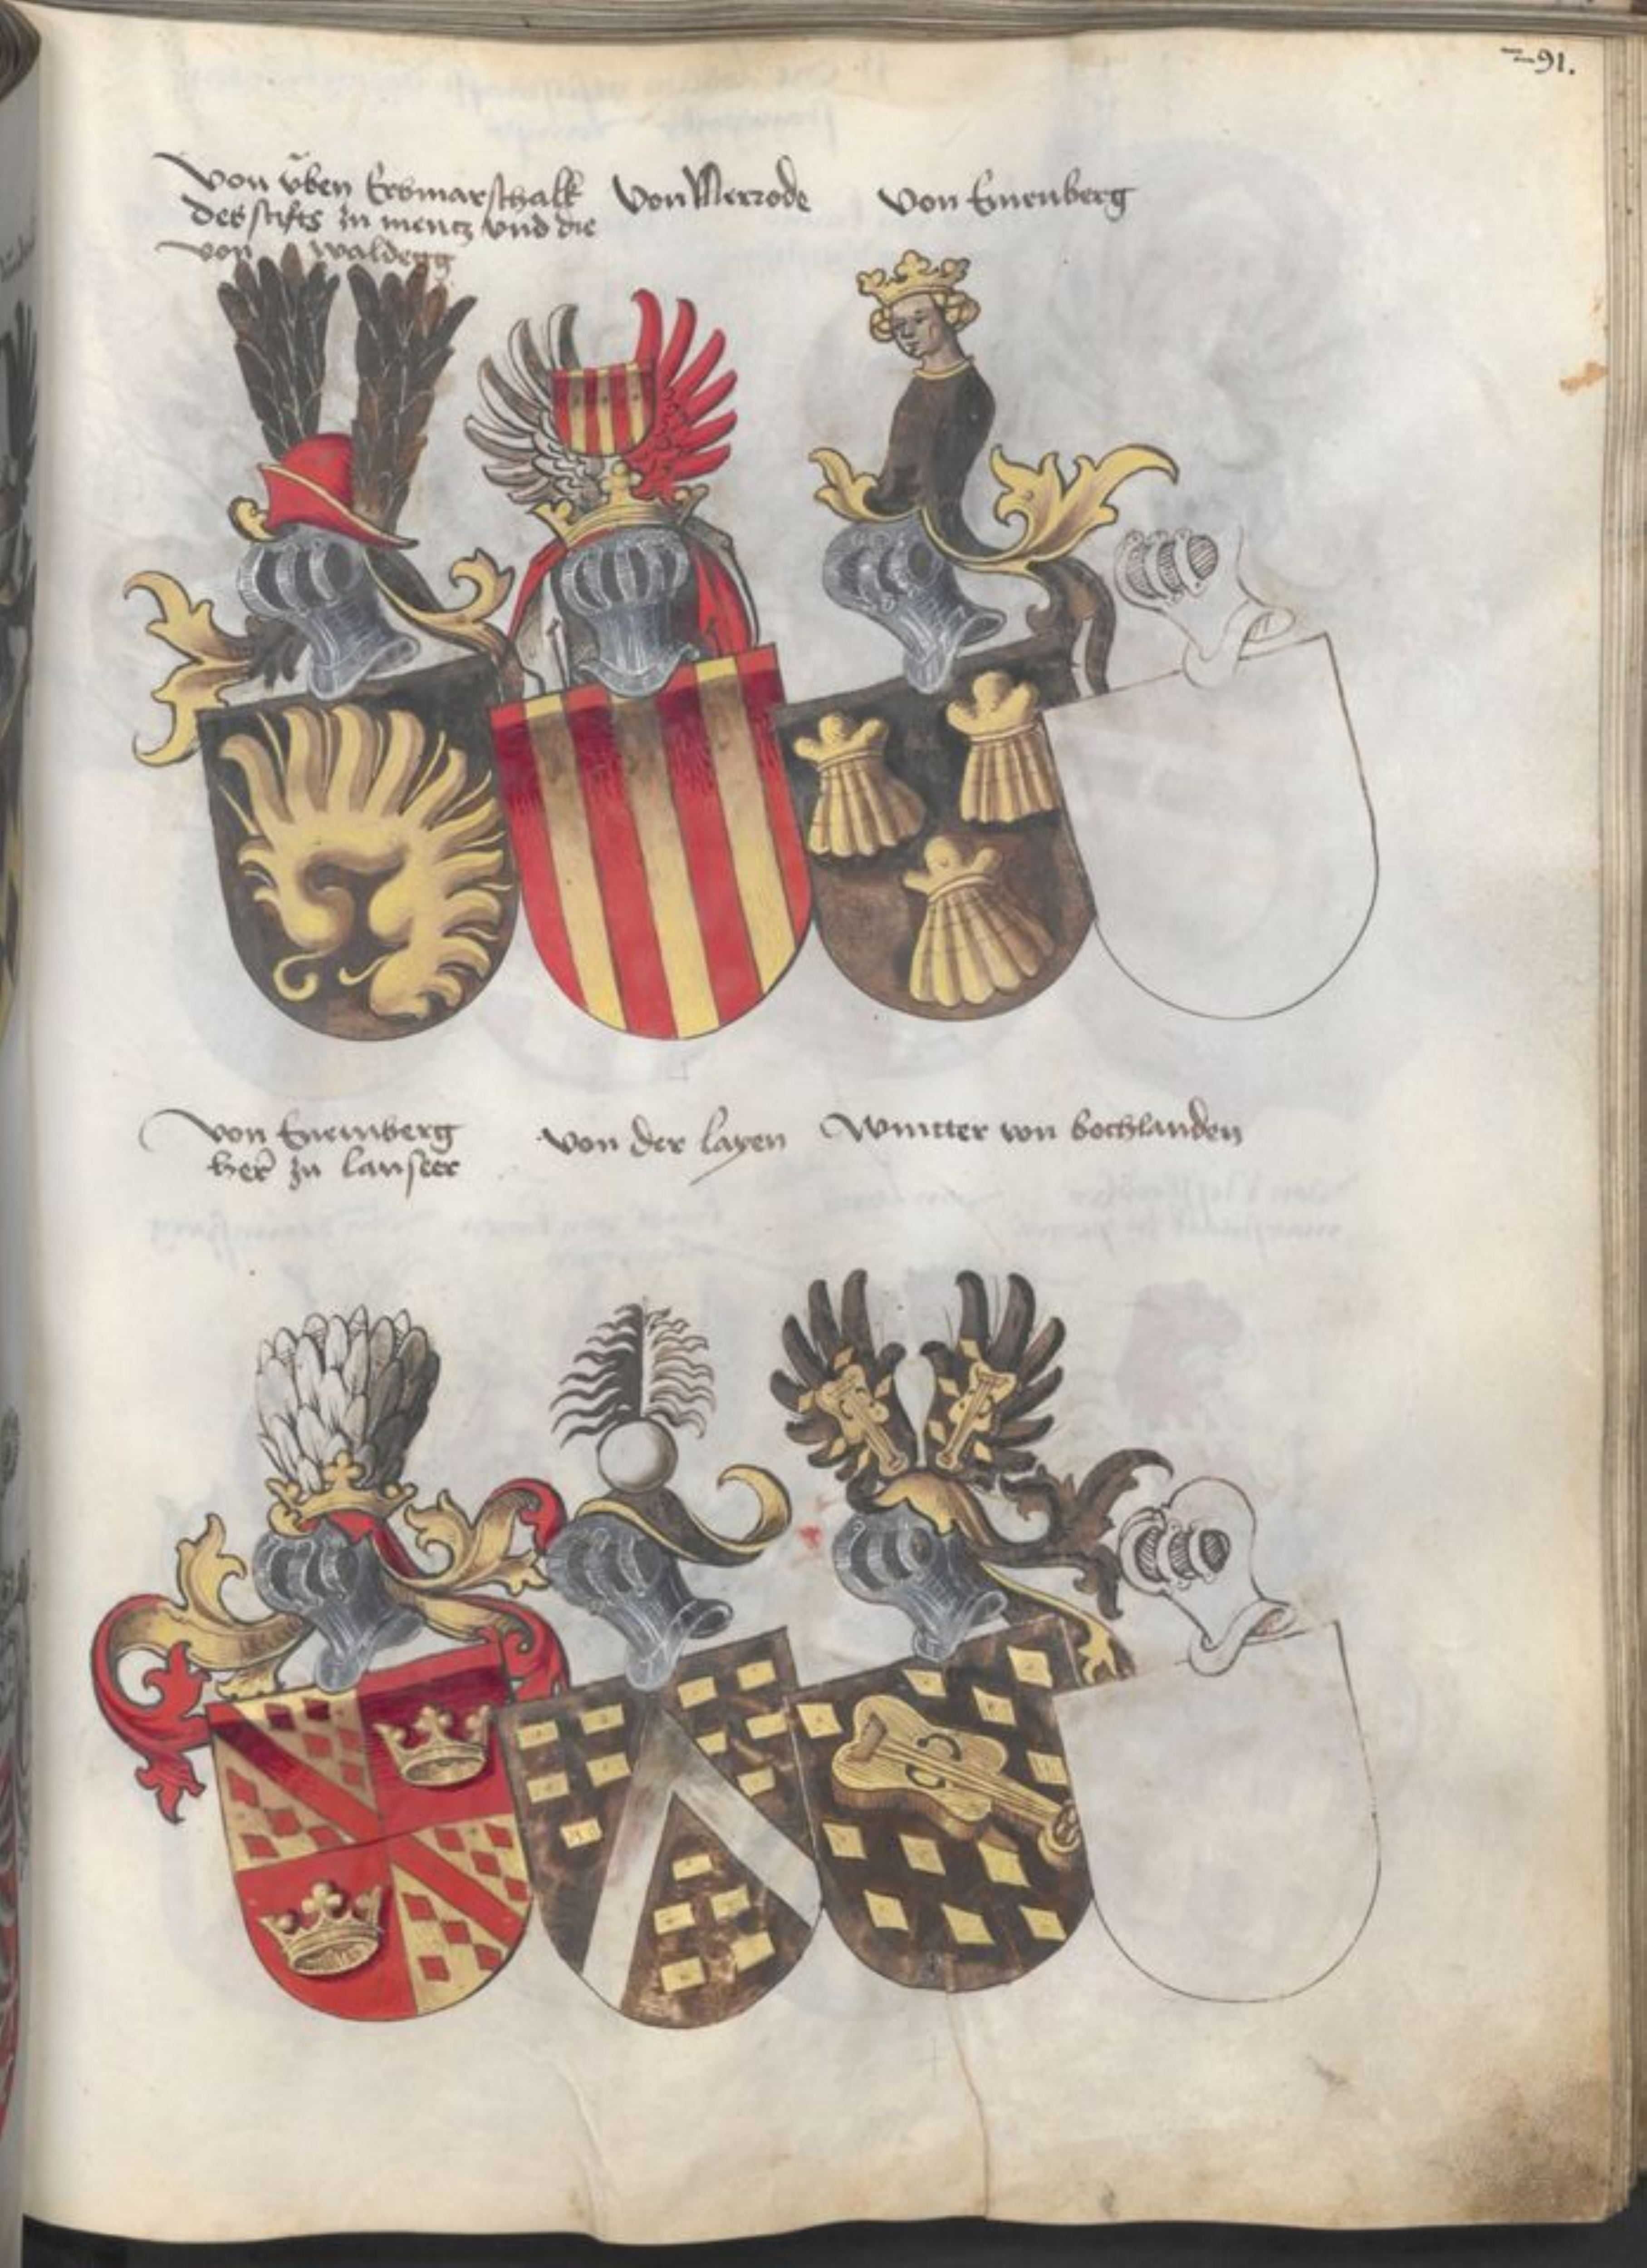 291.
von üben Erbmarschalk
des stifts zu mentz und die
von waldegg
von Merrode
von Einenberg
von Einemberg
her zu lanscer
von der layen
Wintter von bochlanden